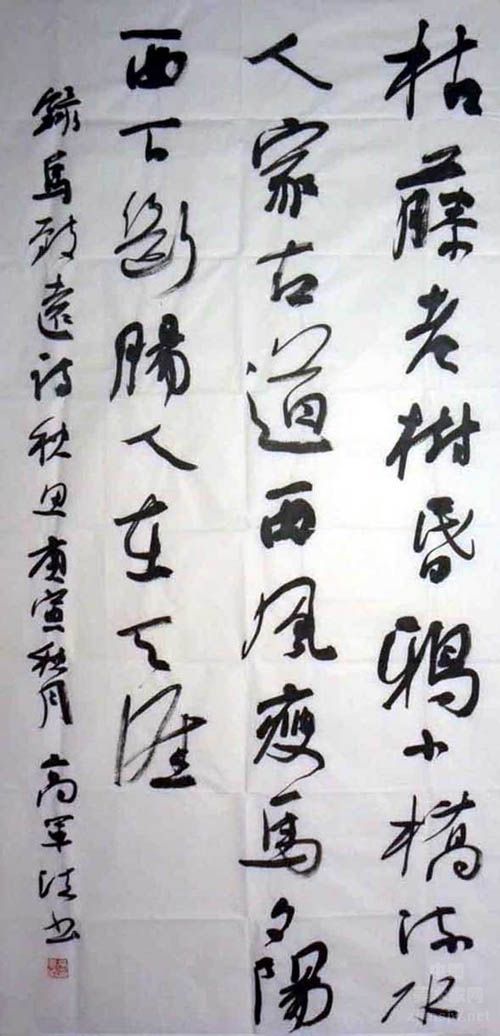 枯藤老樹昏鴉小橋流水
人家古道西風瘦馬夕陽
西下斷腸人在天涯
錄馬致遠詩秋思庚寅秋月高軍法书